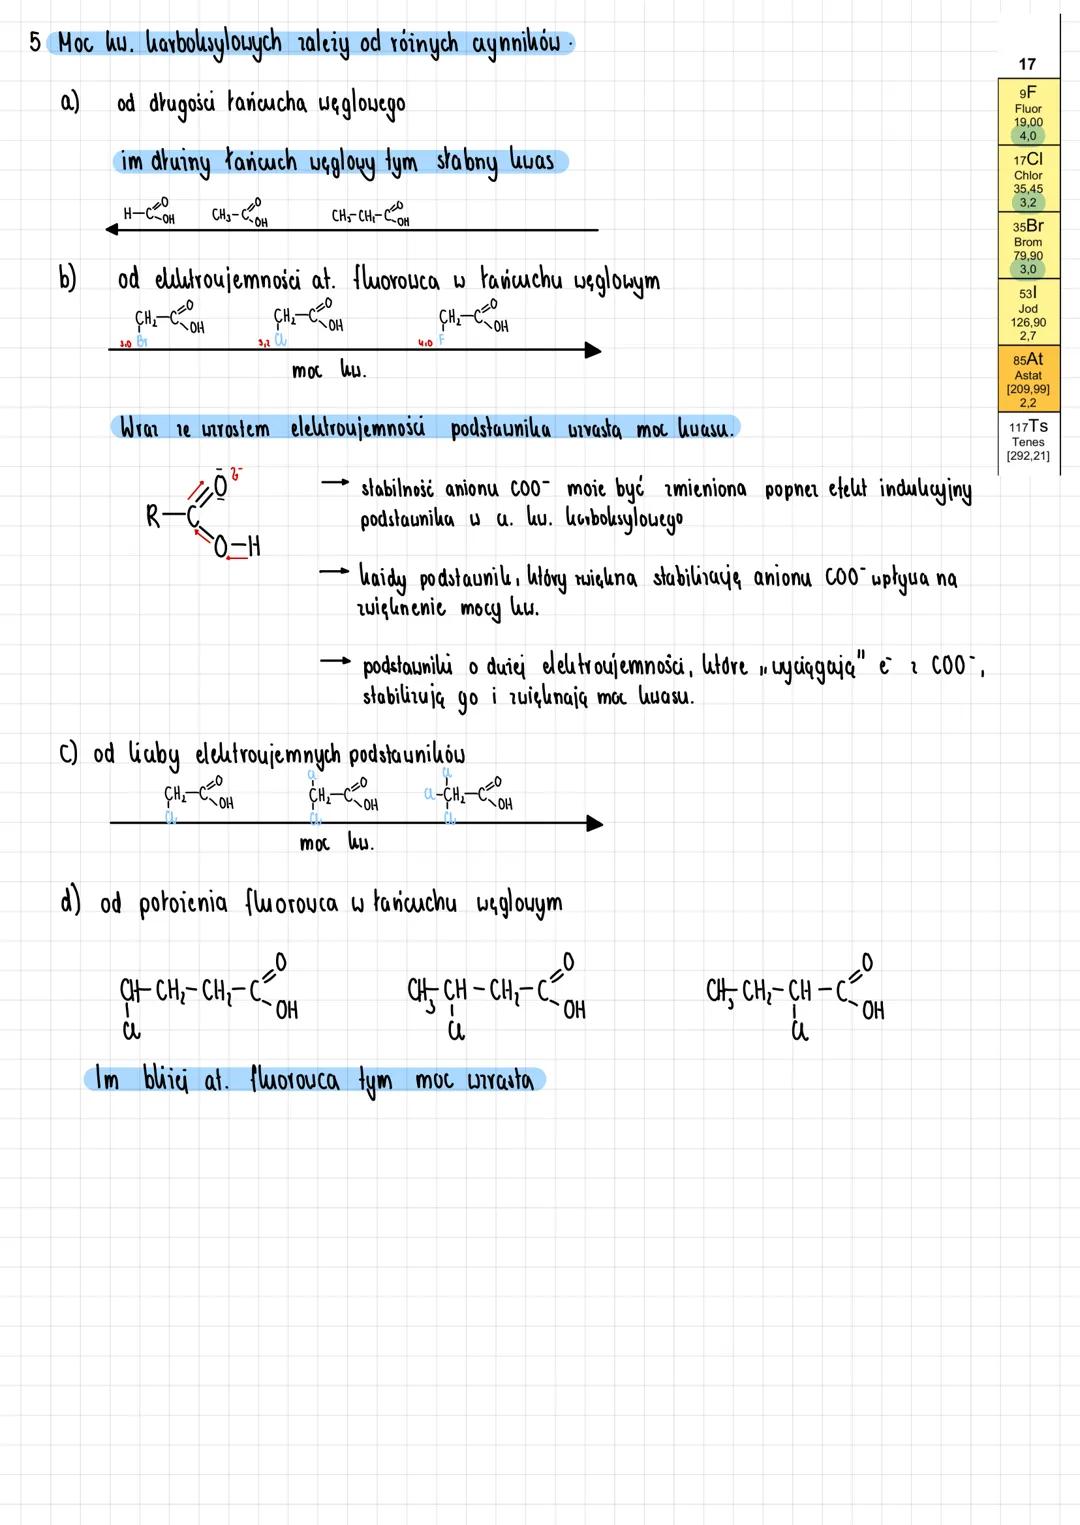 5 Moc kw. karboksylowych zależy od różnych czynników.
a) od długości łańcucha węglowego
im dłuższy łańcuch węglowy tym słabszy kwas
H-C=O OH CH3-C=O OH CH3-CH2-C=O OH
b) od elektroujemności at. fluorowca w łańcuchu węglowym
CH2-C=O OH CH2-C=O OH CH2-C=O OH
3,0 Br 3,2 Cl 4,0 F
moc kw.
Wraz ze wzrostem elektroujemności podstawnika wzrasta moc kwasu.
R-C O δ- O-H
→ stabilność anionu COO⁻ może być zmieniona poprzez efekt indukcyjny
podstawnika w cz. kw. karboksylowego
→ każdy podstawnik, który zwiększa stabilizację anionu COO⁻ wpływa na
zwiększenie mocy kw.
→ podstawniki o dużej elektroujemności, które „wyciągają" e⁻ z COO⁻,
stabilizują go i zwiększają moc kwasu.
c) od liczby elektroujemnych podstawników
Cl Cl
CH2-C=O OH CH2-C=O OH Cl-CH2-C=O OH
Cl Cl Cl
moc kw.
d) od położenia fluorowca w łańcuchu węglowym
CH-CH2-CH2-C=O OH CH3-CH-CH2-C=O OH CH3-CH2-CH-C=O OH
Cl Cl Cl
Im bliżej at. fluorowca tym moc wzrasta
17
9F
Fluor
19,00
4,0
17Cl
Chlor
35,45
3,2
35Br
Brom
79,90
3,0
53I
Jod
126,90
2,7
85At
Astat
[209,99]
2,2
117Ts
Tenes
[292,21]